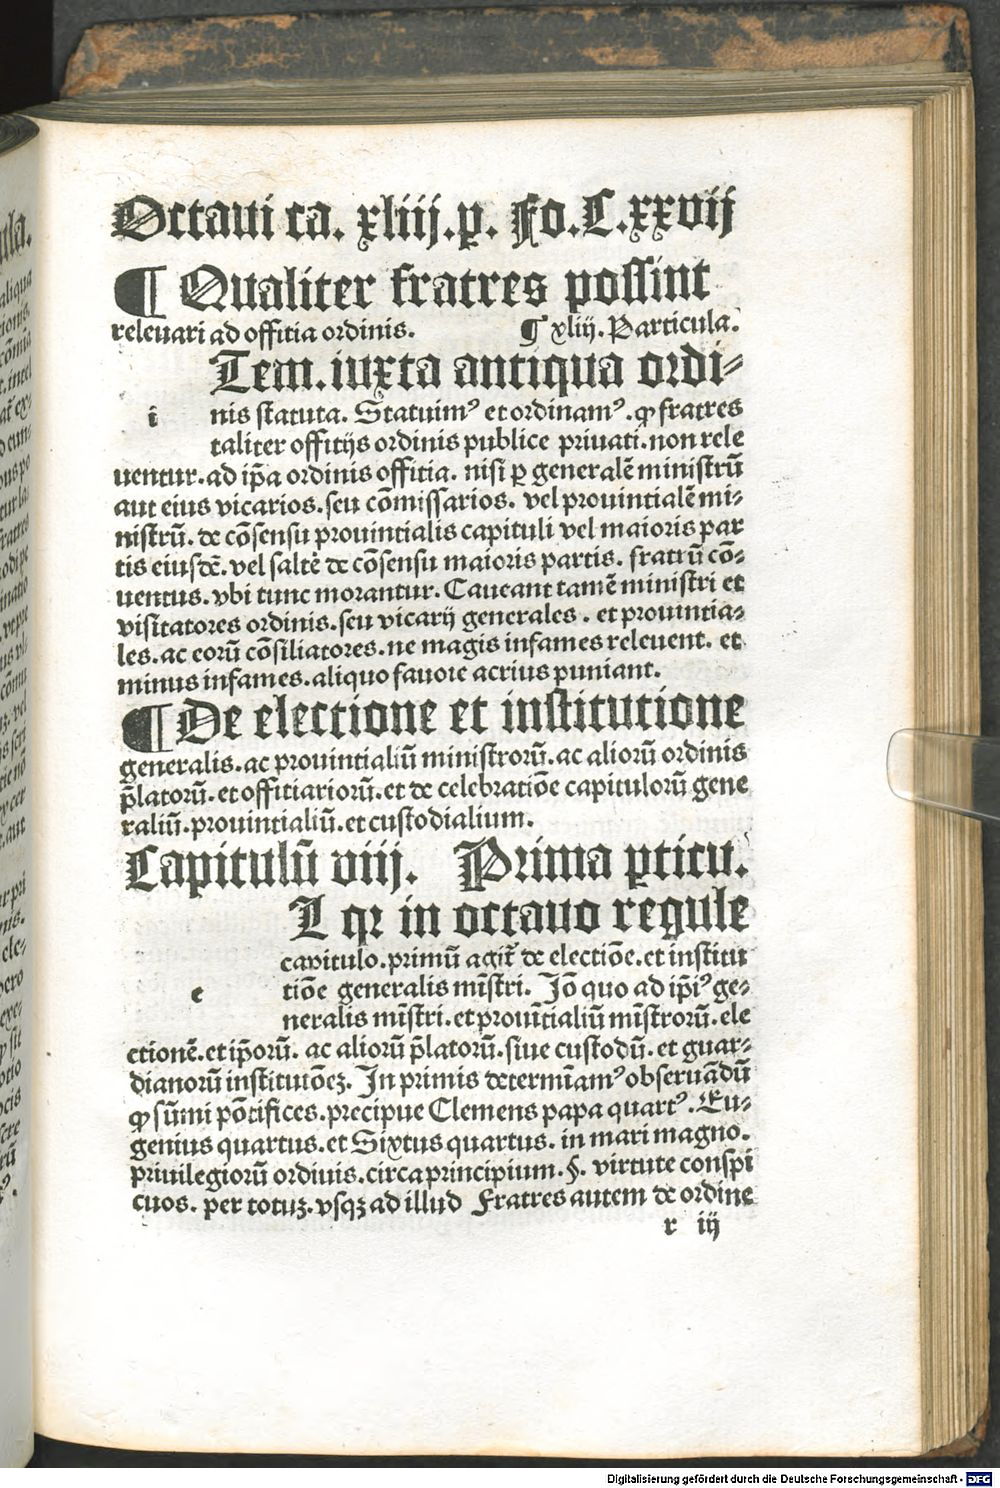 Octaui ca. xliij.p. Fo.C.xxvij
¶ Qualiter fratres possint
releuari ad offitia ordinis. ¶ xliij. Particula.
Tem. iuxta antiqua ordi-
i nis statuta. Statuimꝰ et ordinamꝰ. ꝙ fratres
taliter offitijs ordinis publice priuati. non rele
uentur. ad ip̄a ordinis offitia. nisi ꝑ generalē ministrū
aut eius vicarios. seu cōmissarios. vel prouintialē mi-
nistrū. de cōsensu prouintialis capituli vel maioris par
tis eiusdē. vel saltē de cōsensu maioris partis. fratrū cō-
uentus. vbi tunc morantur. Caueant tamē ministri et
visitatores ordinis. seu vicarij generales. et prouintia-
les. ac eorū cōsiliatores. ne magis infames releuent. et
minus infames. aliquo fauore acrius puniant.
¶ De electione et institutione
generalis. ac prouintialiū ministrorū. ac aliorū ordinis
p̄latorū. et offitiariorū. et de celebratiōe capitulorū gene
raliū. prouintialiū. et custodialium.
Capitulū viij. Prima ꝑticu.
L qꝛ in octauo regule
capitulo. primū agit̃ de electiōe. et institu
e tiōe generalis mīstri. Jō quo ad ip̄iꝰ ge-
neralis mīstri. et prouītialiū mīstrorū. ele
ctionē. et ip̄orū. ac aliorū p̄latorū. siue custodū. et guar-
dianorū institutōeꝫ. In primis determīamꝰ obseruādū
ꝙ sūmi pōtifices. precipue Clemens papa quartꝰ. Eu-
genius quartus. et Sixtus quartus. in mari magno.
priuilegiorū ordiuis. circa principium. §. virtute conspi
cuos. per totuꝫ. vsqꝫ ad illud Fratres autem de ordine
r iij
Digitalisierung gefördert durch die Deutsche Forschungsgemeinschaft - DFG